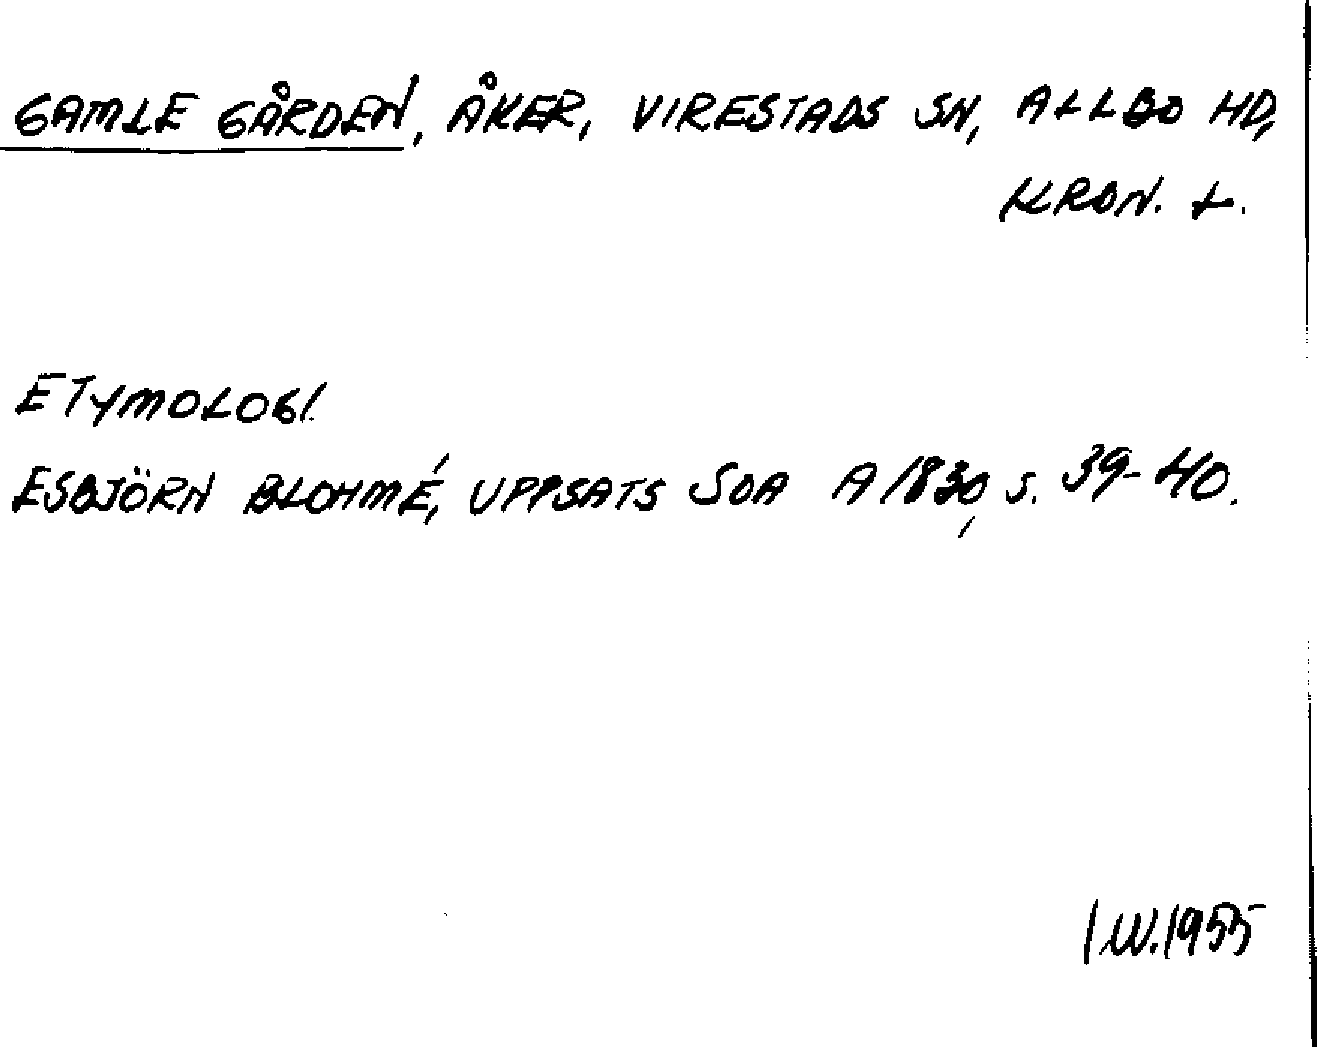 GAMLE GÅRDEN, ÅKER, VIRESTADS SN, ALLBO HD,
KRON. L.
ETYMOLOGI.
ESBJÖRN BLOHMÉ, UPPSATS SOA A 1830, s. 39-40.
I.W. 1955